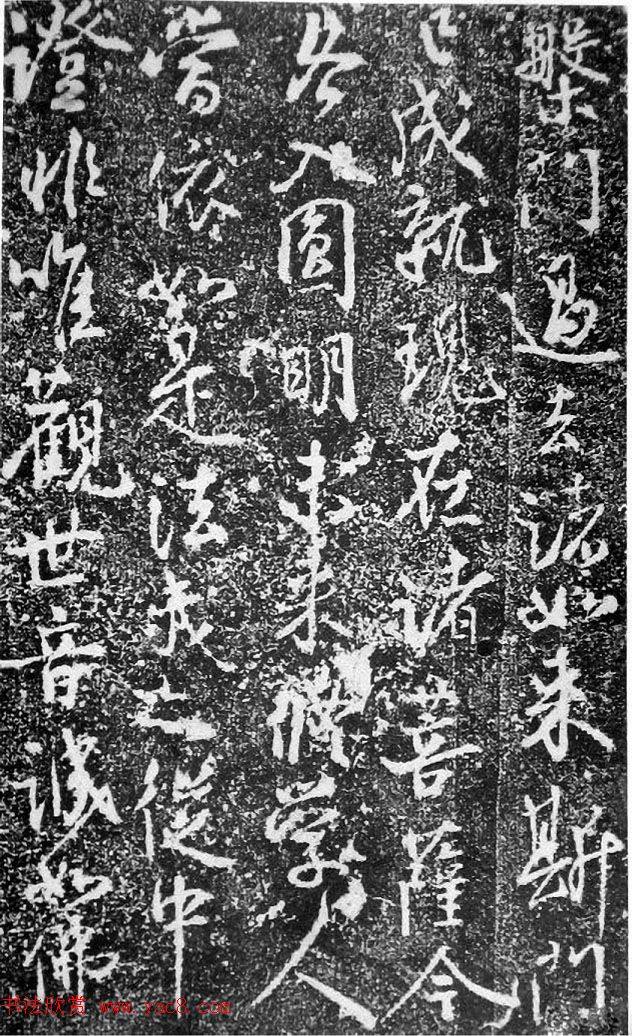 槃門過去諸如來斯門
已成就現在諸菩薩今
各入圓明未來修學人
當依如是法我亦從中
證非唯觀世音誠如佛
书法欣赏 www.yac8.com